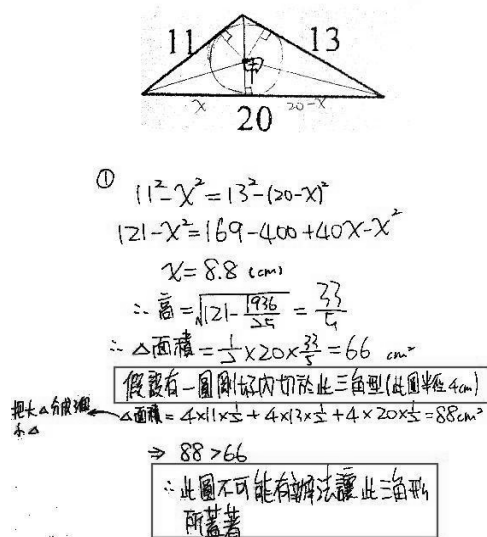 11
13
甲
x
20-x
20
①
11²-x²=13²-(20-x)²
121-x²=169-400+40x-x²
x=8.8 (cm)
∴高=√121-1936/25=33/5
∴△面積=1/2×20×33/5=66 cm²
假設有一圓剛好內切於此三角型(此圓半徑4cm)
把大△分成3個小△
△面積=4×11×1/2+4×13×1/2+4×20×1/2=88cm²
⇒ 88>66
∴此圓不可能有辦法讓此三角形
所蓋著